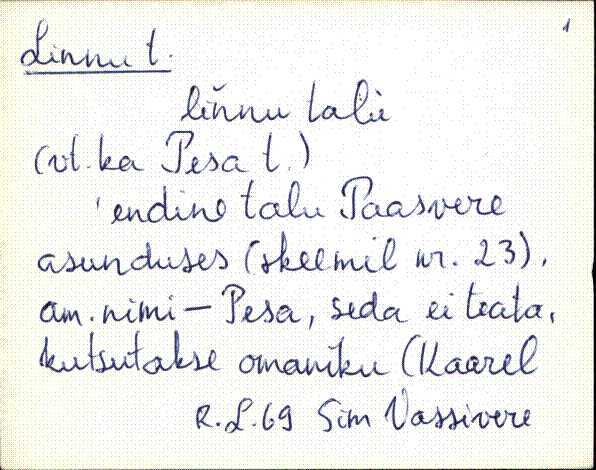 1
Linnu t.
liǹnu talù
(vt. ka Pesa t.)
'endine talu Paasvere
asunduses (skeemil nr. 23),
am. nimi — Pesa, seda ei teata,
kutsutakse omaniku (Kaarel
R.L. 69 Sim Vassivere